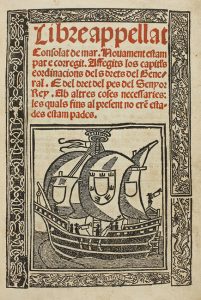 Libre appellat
Consolat de mar. Nouament estam
pat e corregit. Affegits los capitls
e ordinacions dels drets del Gene-
ral. E del dret del pes del Senyor
Rey. Ab altres coses necessaries:
les quals fins al present no erē esta-
des estampades.